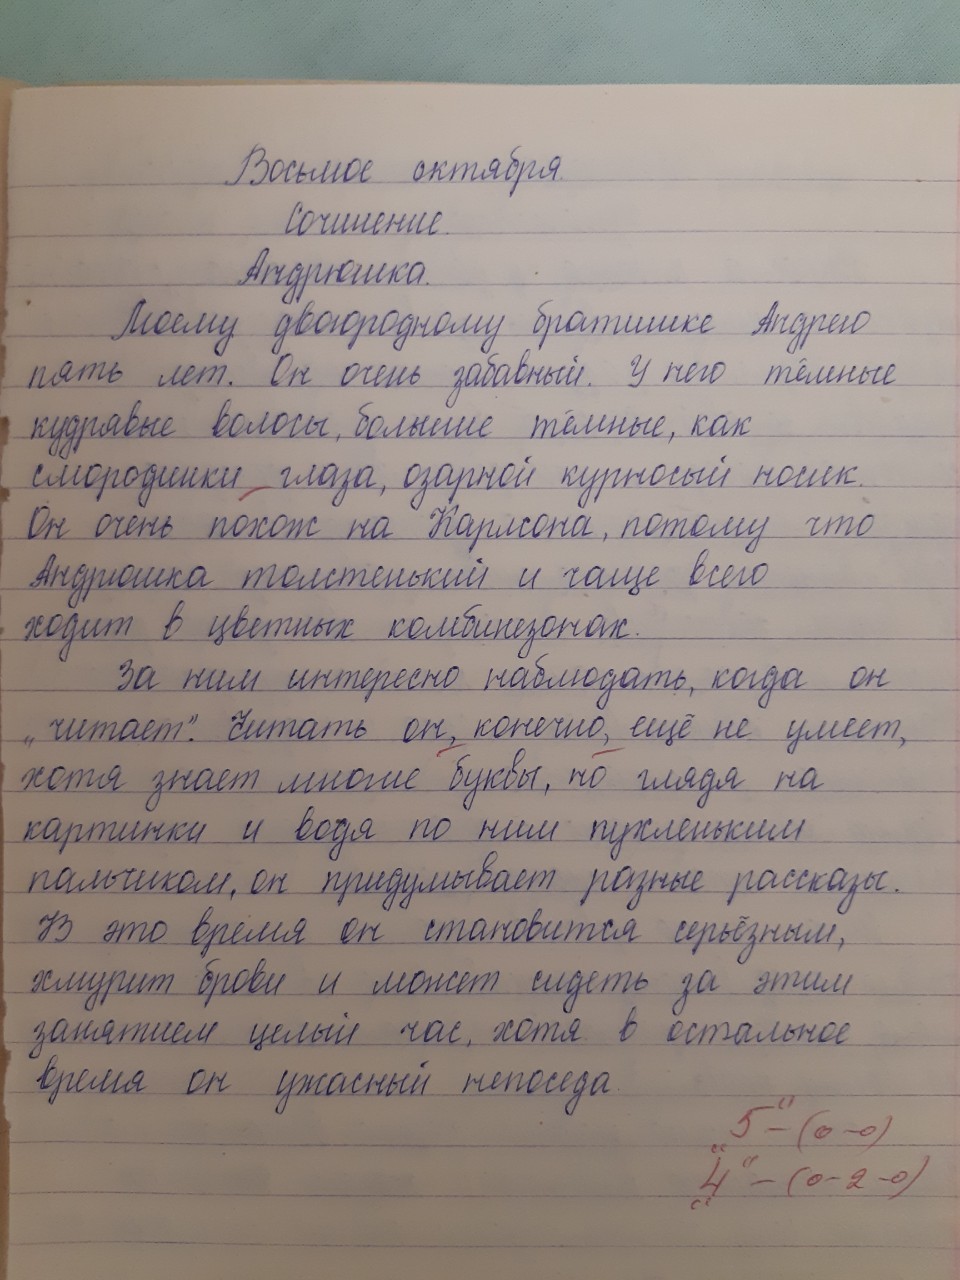 Восьмое октября.
Сочинение.
Андрюшка.
Моему двоюродному братишке Андрею
пять лет. Он очень забавный. У него тёмные
кудрявые волосы, большие тёмные, как
смородинки глаза, озарной курносый носик.
Он очень похож на Карлсона, потому что
Андрюшка толстенький и чаще всего
ходит в цветных комбинезонах.
За ним интересно наблюдать, когда он
„читает”. Читать он, конечно, ещё не умеет,
хотя знает многие буквы, но глядя на
картинки и водя по ним пухленьким
пальчиком, он придумывает разные рассказы.
В это время он становится серьёзным,
хмурит брови и может сидеть за этим
занятием целый час, хотя в остальное
время он ужасный непоседа.
„5” – (0 – 0)
„4” – (0 – 2 – 0)